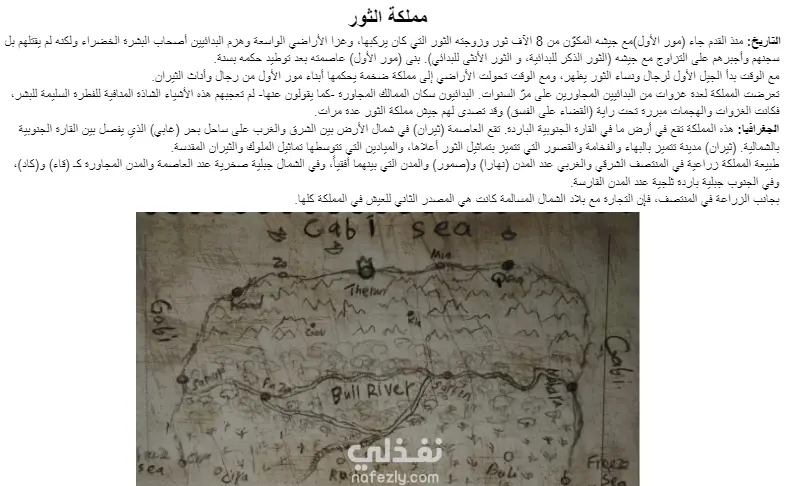 مملكة الثور
التاريخ: منذ القدم جاء (مور الأول)مع جيشه المكوّن من 8 الآف ثور وزوجته الثور التي كان يركبها، وغزا الأراضي الواسعة وهزم البدائيين أصحاب البشرة الخضراء ولكنه لم يقتلهم بل
سجنهم وأجبرهم على التزاوج مع جيشه (الثور الذكر للبدائية، و الثور الأنثى للبدائي). بنى (مور الأول) عاصمته بعد توطيد حكمه بسنة.
مع الوقت بدأ الجيل الأول لرجال ونساء الثور يظهر، ومع الوقت تحولت الأراضي إلى مملكة ضخمة يحكمها أبناء مور الأول من رجال وأناث الثيران.
تعرضت المملكة لعدة غزوات من البدائيين المجاورين على مرّ السنوات. البدائيون سكان الممالك المجاورة -كما يقولون عنها- لم تعجبهم هذه الأشياء الشاذة المنافية للفطرة السليمة للبشر،
فكانت الغزوات والهجمات مبررة تحت راية (القضاء على الفسق) وقد تصدى لهم جيش مملكة الثور عدة مرات.
الجغرافيا: هذه المملكة تقع في أرض ما في القارة الجنوبية الباردة. تقع العاصمة (ثيران) في شمال الأرض بين الشرق والغرب على ساحل بحر (غابي) الذي يفصل بين القارة الجنوبية
بالشمالية. (ثيران) مدينة تتميز بالبهاء والفخامة والقصور التي تتميز بتماثيل الثور أعلاها، والميادين التي تتوسطها تماثيل الملوك والثيران المقدسة.
طبيعة المملكة زراعية في المنتصف الشرقي والغربي عند المدن (نهارا) و(صمور) والمدن التي بينهما أفقياً، وفي الشمال جبلية صخرية عند العاصمة والمدن المجاورة كـ (قاء) و(كاد)،
وفي الجنوب جبلية باردة ثلجية عند المدن القارسة.
بجانب الزراعة في المنتصف، فإن التجارة مع بلاد الشمال المسالمة كانت هي المصدر الثاني للعيش في المملكة كلها.
Gabi sea
Zo
Min
Kaad
Gabi
Gabi
Bull River
sea
Bali
Freeze
sea
نفذلي
nafezly.com